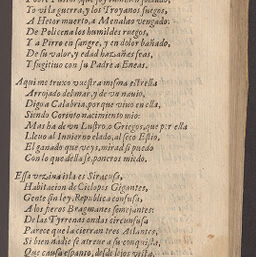 To vi la guerra, y los Troyanos fuegos,
A Hetor muerto, a Menalao vengado:
De Policena los humildes ruegos,
Y a Pirro en sangre, y en dolor bañado,
De su valor, y edad hazañas feas,
Y fugitivo con su Padre a Eneas.
Aqui me truxo vuestra misma estrella
Arrojado del mar, y de un navio,
Digo a Calabria, porque vivo en ella,
Siendo Corinto nacimiento mio:
Mas ha de un Lustro, o Griegos, que por ella
Llevo al Invierno elado, al seco Estio,
El ganado que veys, mirad si puedo
Con lo que della se, poneros miedo.
Essa vezina isla es Siracusa,
Habitacion de Ciclopes Gigantes,
Gente sin ley, Republica confusa,
A los fieros Bragmanes semejantes:
De las Tyrrenas ondas circunfusa
Parece que la cierran tres Atlantes,
Si bien nadie se atreve a su conquista,
Que causa espanto, desde lejos vista.